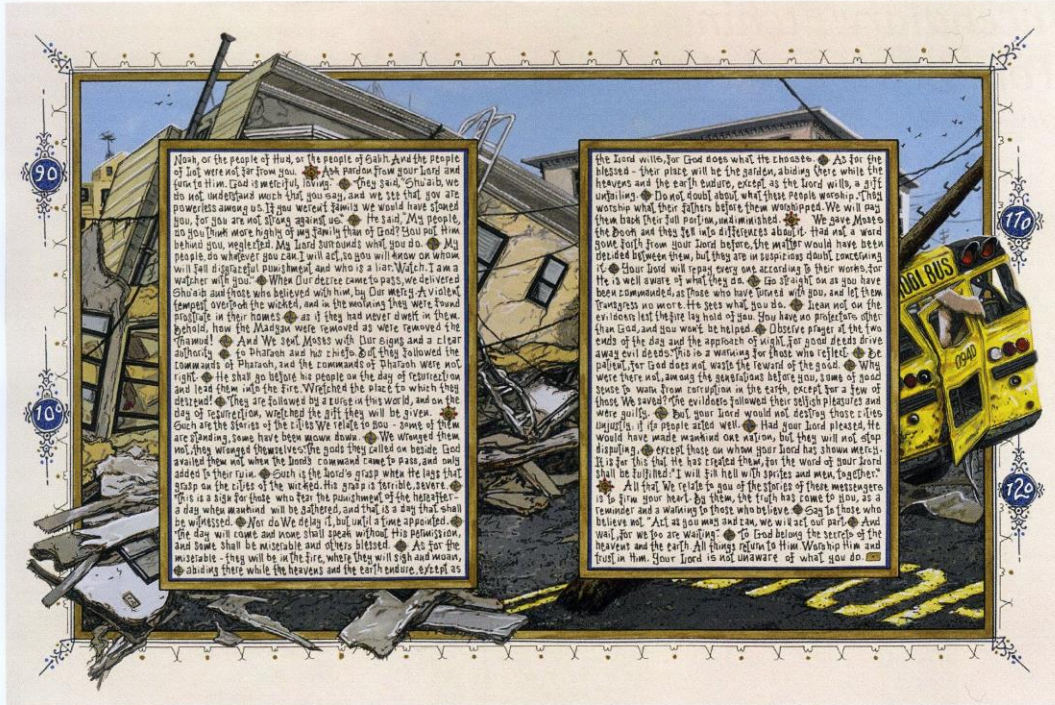 90
100
Noah, or the people of Hud, or the people of Salih. And the people
of Lot were not far from you. Ask pardon from your Lord and
turn to Him. God is merciful, loving. They said, "Shu'aib, we
do not understand much that you say, and we see that you are
powerless among us. If you weren't family we would have stoned
you, for you are not strong against us." He said, "My people,
do you think more highly of my family than of God? You put Him
behind you, neglected. My Lord surrounds what you do. My
people, do whatever you can. I will act, so you will know on whom
will fall disgraceful punishment and who is a liar. Watch. I am a
watcher with you." When Our decree came to pass, we delivered
Shu'aib and those who believed with him, by Our mercy. A violent
tempest overtook the wicked, and in the morning they were found
prostrate in their homes as if they had never dwelt in them.
Behold, how the Madyan were removed as were removed the
Thamud! And We sent Moses with Our signs and a clear
authority to Pharaoh and his chiefs. But they followed the
commands of Pharaoh, and the commands of Pharaoh were not
right. He shall go before his people on the day of resurrection
and lead them into the fire. Wretched the place to which they
descend! They are followed by a curse in this world, and on the
day of resurrection, wretched the gift they will be given.
Such are the stories of the cities We relate to you - some of them
are standing, some have been mown down. We wronged them
not, they wronged themselves: the gods they called on beside God
availed them not when the Lord's command came to pass, and only
added to their ruin. Such is the Lord's grasp when He lays that
grasp on the cities of the wicked. His grasp is terrible, severe.
This is a sign for those who fear the punishment of the hereafter -
a day when mankind will be gathered, and that is a day that shall
be witnessed. Nor do We delay it, but until a time appointed.
The day will come and none shall speak without His permission,
and some shall be miserable and others blessed. As for the
miserable - they will be in the fire, where they will sigh and moan,
abiding there while the heavens and the earth endure, except as
the Lord wills, for God does what He chooses. As for the
blessed - their place will be the garden, abiding there while the
heavens and the earth endure, except as the Lord wills, a gift
unfailing. Do not doubt about what these people worship. They
worship what their fathers before them worshipped. We will pay
them back their full portion, undiminished. We gave Moses
the Book and they fell into differences about it. Had not a word
gone forth from your Lord before, the matter would have been
decided between them, but they are in suspicious doubt concerning
it. Your Lord will repay every one according to their works, for
He is well aware of what they do. Go straight on as you have
been commanded, as those who have turned with you, and let them
transgress no more. He sees what you do. Lean not on the
evildoers lest the fire lay hold of you. You have no protectors other
than God, and you won't be helped. Observe prayer at the two
ends of the day and the approach of night, for good deeds drive
away evil deeds. This is a warning for those who reflect. Be
patient, for God does not waste the reward of the good. Why
were there not, among the generations before you, some of good
sense to warn from corruption in the earth, except for a few of
those We saved? The evildoers followed their selfish pleasures and
were guilty. But your Lord would not destroy those cities
unjustly, if its people acted well. Had your Lord pleased, He
would have made mankind one nation, but they will not stop
disputing, except those on whom your Lord has shown mercy.
It is for this that He has created them, for the word of your Lord
shall be fulfilled: "I will fill hell with spirits and men, together."
All that We relate to you of the stories of these messengers
is to firm your heart. By them, the truth has come to you, as a
reminder and a warning to those who believe. Say to those who
believe not "Act as you may and can, we will act our part. And
wait, for we too are waiting." To God belong the secrets of the
heavens and the earth. All things return to Him. Worship Him and
trust in Him. Your Lord is not unaware of what you do.
110
120
BUS
0940